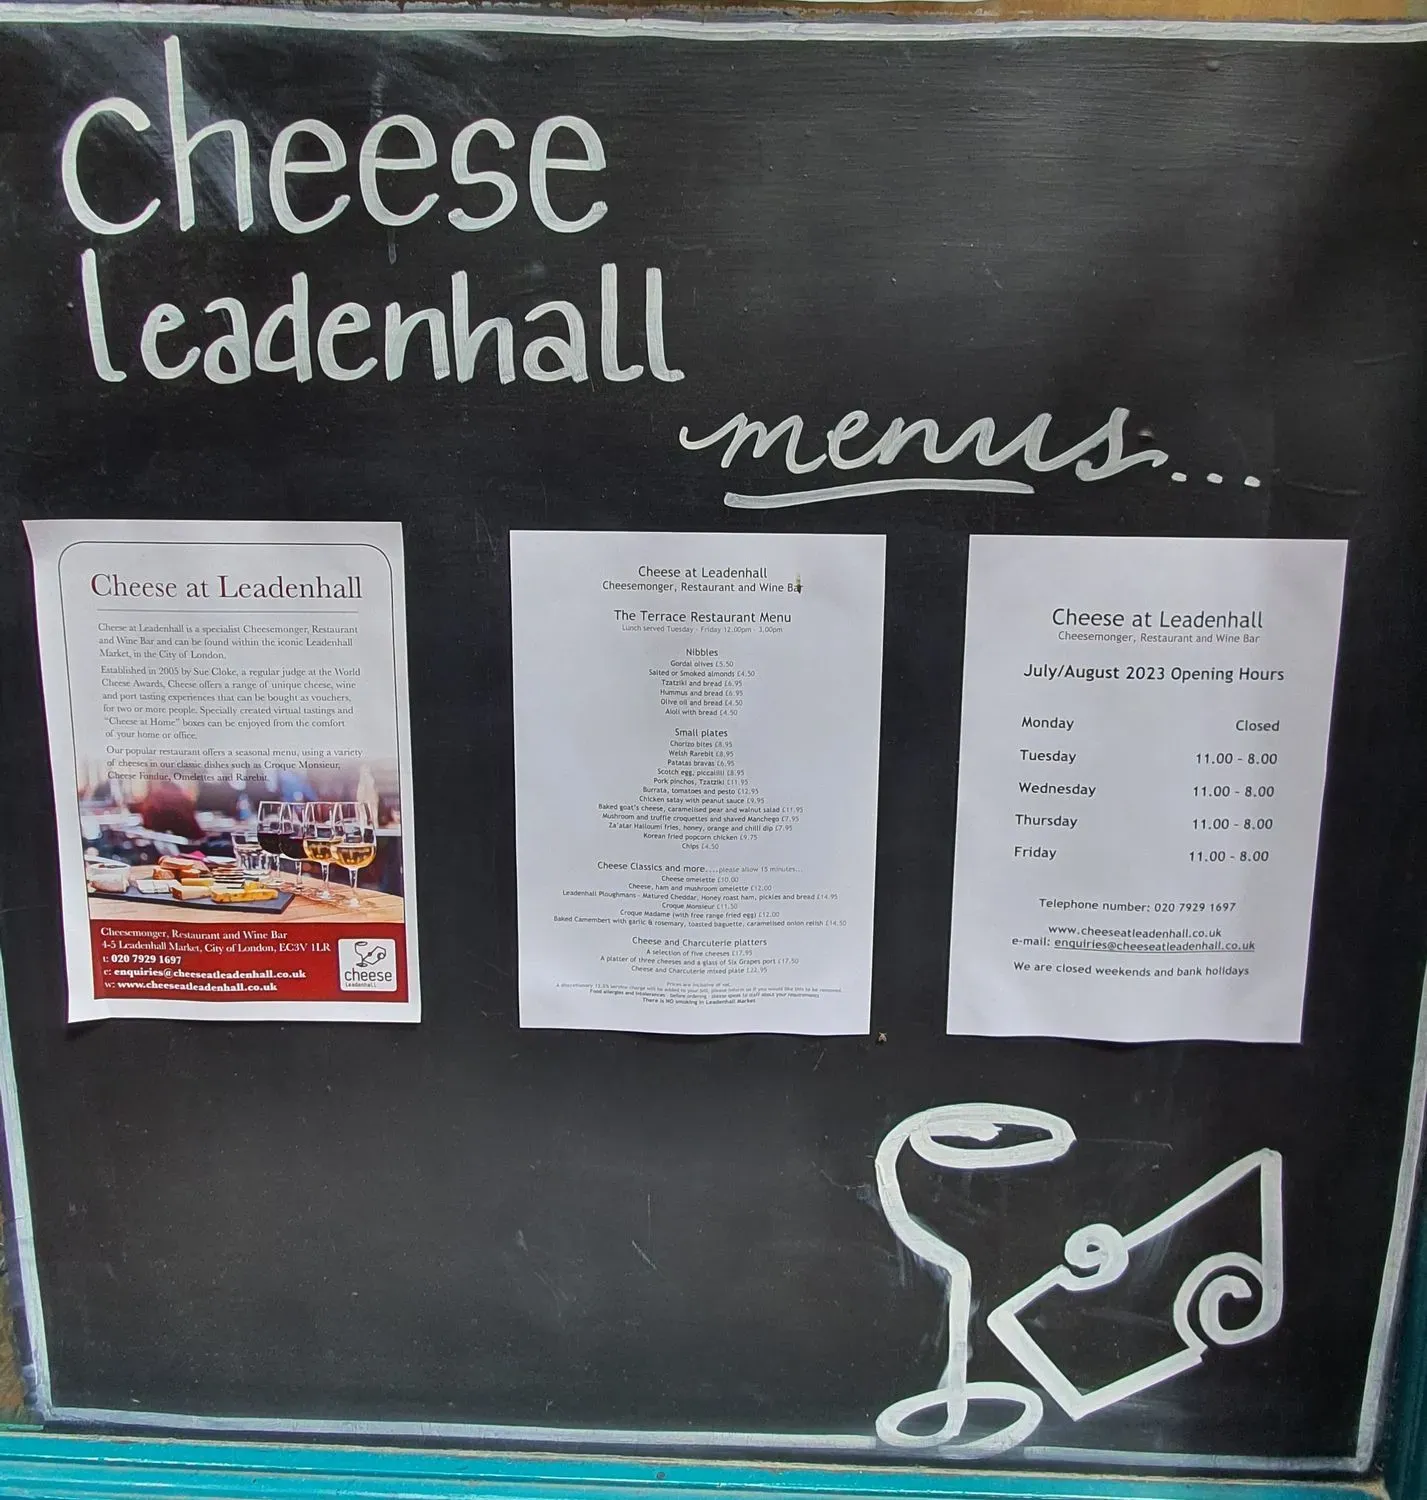 cheese
leadenhall
menus...
Cheese at Leadenhall
Cheese at Leadenhall is a specialist Cheesemonger, Restaurant
and Wine Bar and can be found within the iconic Leadenhall
Market, in the City of London.
Established in 2005 by Sue Cloke, a regular judge at the World
Cheese Awards, Cheese offers a range of unique cheese, wine
and port tasting experiences that can be bought as vouchers,
for two or more people. Specially created virtual tastings and
"Cheese at Home" boxes can be enjoyed from the comfort
of your home or office.
Our popular restaurant offers a seasonal menu, using a variety
of cheeses in our classic dishes such as Croque Monsieur,
Cheese Fondue, Omelettes and Rarebit.
Cheesemonger, Restaurant and Wine Bar
4-5 Leadenhall Market, City of London, EC3V 1LR
t: 020 7929 1697
e: enquiries@cheeseatleadenhall.co.uk
w: www.cheeseatleadenhall.co.uk
cheese
leadenhall
Cheese at Leadenhall
Cheesemonger, Restaurant and Wine Bar
The Terrace Restaurant Menu
Lunch served Tuesday - Friday 12.00pm - 3.00pm
Nibbles
Gordal olives £5.50
Salted or Smoked almonds £4.50
Tzatziki and bread £6.95
Hummus and bread £6.95
Olive oil and bread £4.50
Aioli with bread £4.50
Small plates
Chorizo bites £8.95
Welsh Rarebit £8.95
Patatas bravas £6.95
Scotch egg, piccalilli £8.95
Pork pinchos, Tzatziki £11.95
Burrata, tomatoes and pesto £12.95
Chicken satay with peanut sauce £9.95
Baked goat's cheese, caramelised pear and walnut salad £11.95
Mushroom and truffle croquettes and shaved Manchego £7.95
Za'atar Halloumi fries, honey, orange and chilli dip £7.95
Korean fried popcorn chicken £9.75
Chips £4.50
Cheese Classics and more....please allow 15 minutes...
Cheese omelette £10.00
Cheese, ham and mushroom omelette £12.00
Leadenhall Ploughmans - Matured Cheddar, Honey roast ham, pickles and bread £14.95
Croque Monsieur £11.50
Croque Madame (with free range fried egg) £12.00
Baked Camembert with garlic & rosemary, toasted baguette, caramelised onion relish £14.50
Cheese and Charcuterie platters
A selection of five cheeses £17.95
A platter of three cheeses and a glass of Six Grapes port £17.50
Cheese and Charcuterie mixed plate £22.95
Prices are inclusive of vat.
A discretionary 12.5% service charge will be added to your bill, please inform us if you would like this to be removed
Food allergies and intolerances - before ordering - please speak to staff about your requirements
There is NO smoking in Leadenhall Market
Cheese at Leadenhall
Cheesemonger, Restaurant and Wine Bar
July/August 2023 Opening Hours
Monday Closed
Tuesday 11.00 - 8.00
Wednesday 11.00 - 8.00
Thursday 11.00 - 8.00
Friday 11.00 - 8.00
Telephone number: 020 7929 1697
www.cheeseatleadenhall.co.uk
e-mail: enquiries@cheeseatleadenhall.co.uk
We are closed weekends and bank holidays